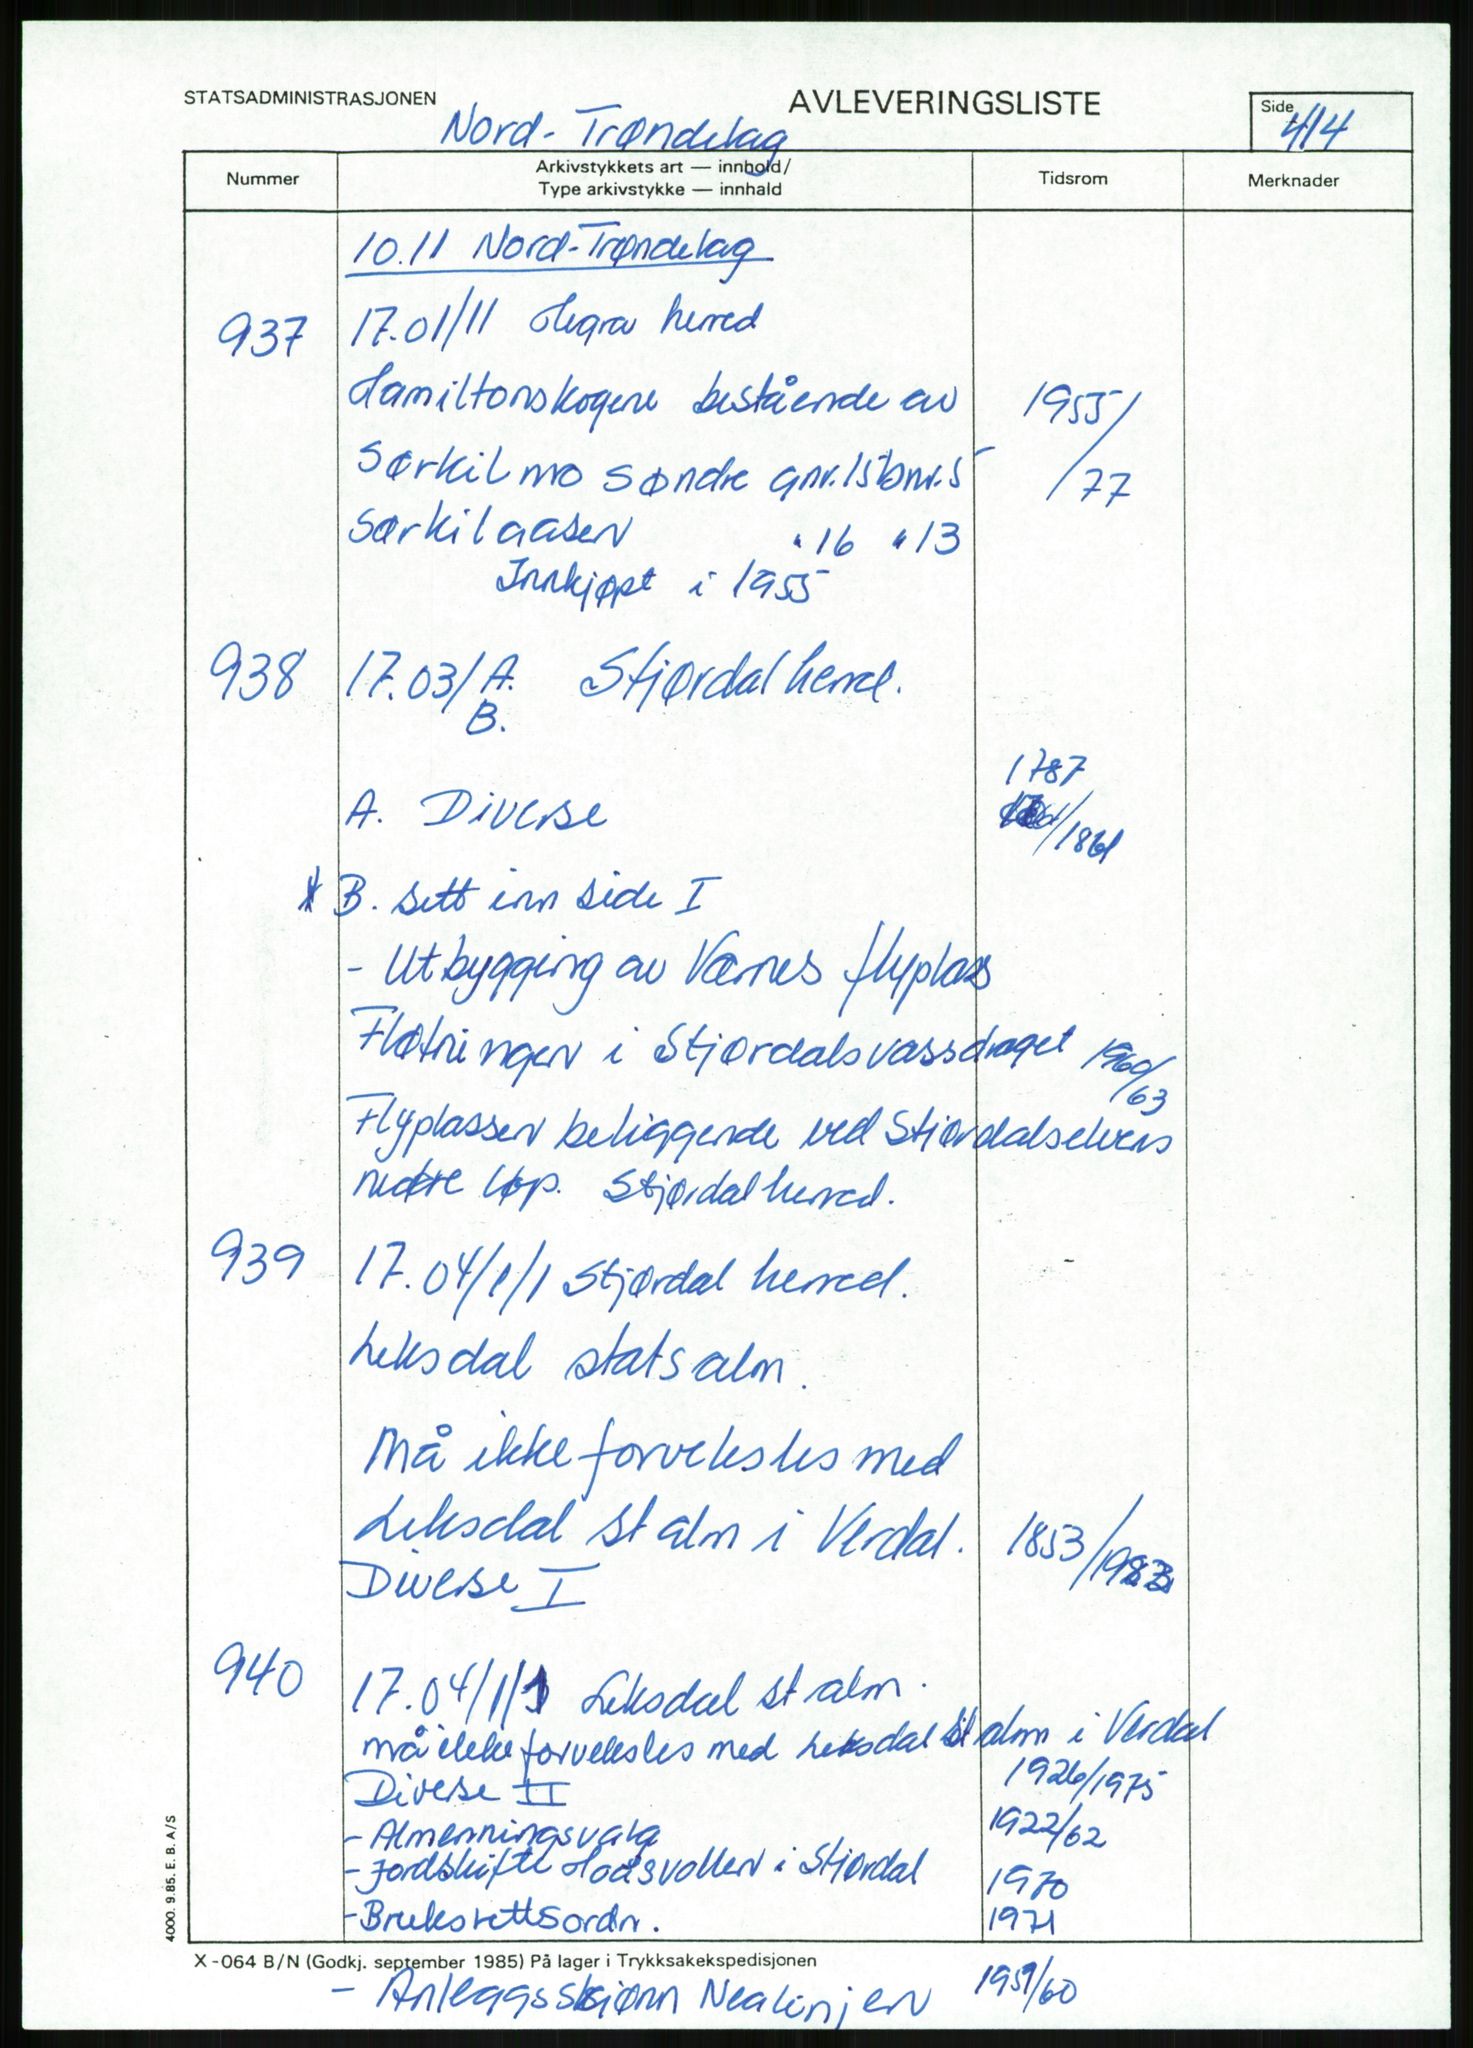 STATSADMINISTRASJONEN
AVLEVERINGSLISTE
Side 414
Nord-Trøndelag
Nummer
Arkivstykkets art — innhold/
Type arkivstykke — innhald
Tidsrom
Merknader
10.11 Nord-Trøndelag
937 17.01/11 Hegra herred
Hamiltonskogene bestående av 1955/
Sørkilmo søndre gnr. 15 bnr. 5 /77
Sørkilaasen " 16 " 13
Innkjøpt i 1955
938 17.03/A. Stjørdal herred.
B.
1787
A. Diverse /1861
* B. sett inn side I
- Utbygging av Værnes flyplass
Fløtningen i Stjørdalsvassdraget 1960/63
Flyplassen beliggende ved Stjørdalselvens
nedre løp. Stjørdal herred.
939 17.04/1/1 Stjørdal herred.
Leksdal statsalm.
Må ikke forveksles med
Leksdal st alm i Verdal. 1853/1983
Diverse I
940 17.04/1/1 Leksdal st alm.
må ikke forveksles med Leksdal st alm i Verdal
Diverse II 1926/1975
- Almenningsvalg 1922/62
- Jordskifte Hoåsvollen i Stjørdal 1970
- Bruksrettsordn. 1971
4000. 9.85. E. B. A/S
X-064 B/N (Godkj. september 1985) På lager i Trykksakekspedisjonen
- Anleggsskjønn Nealinjen 1959/60